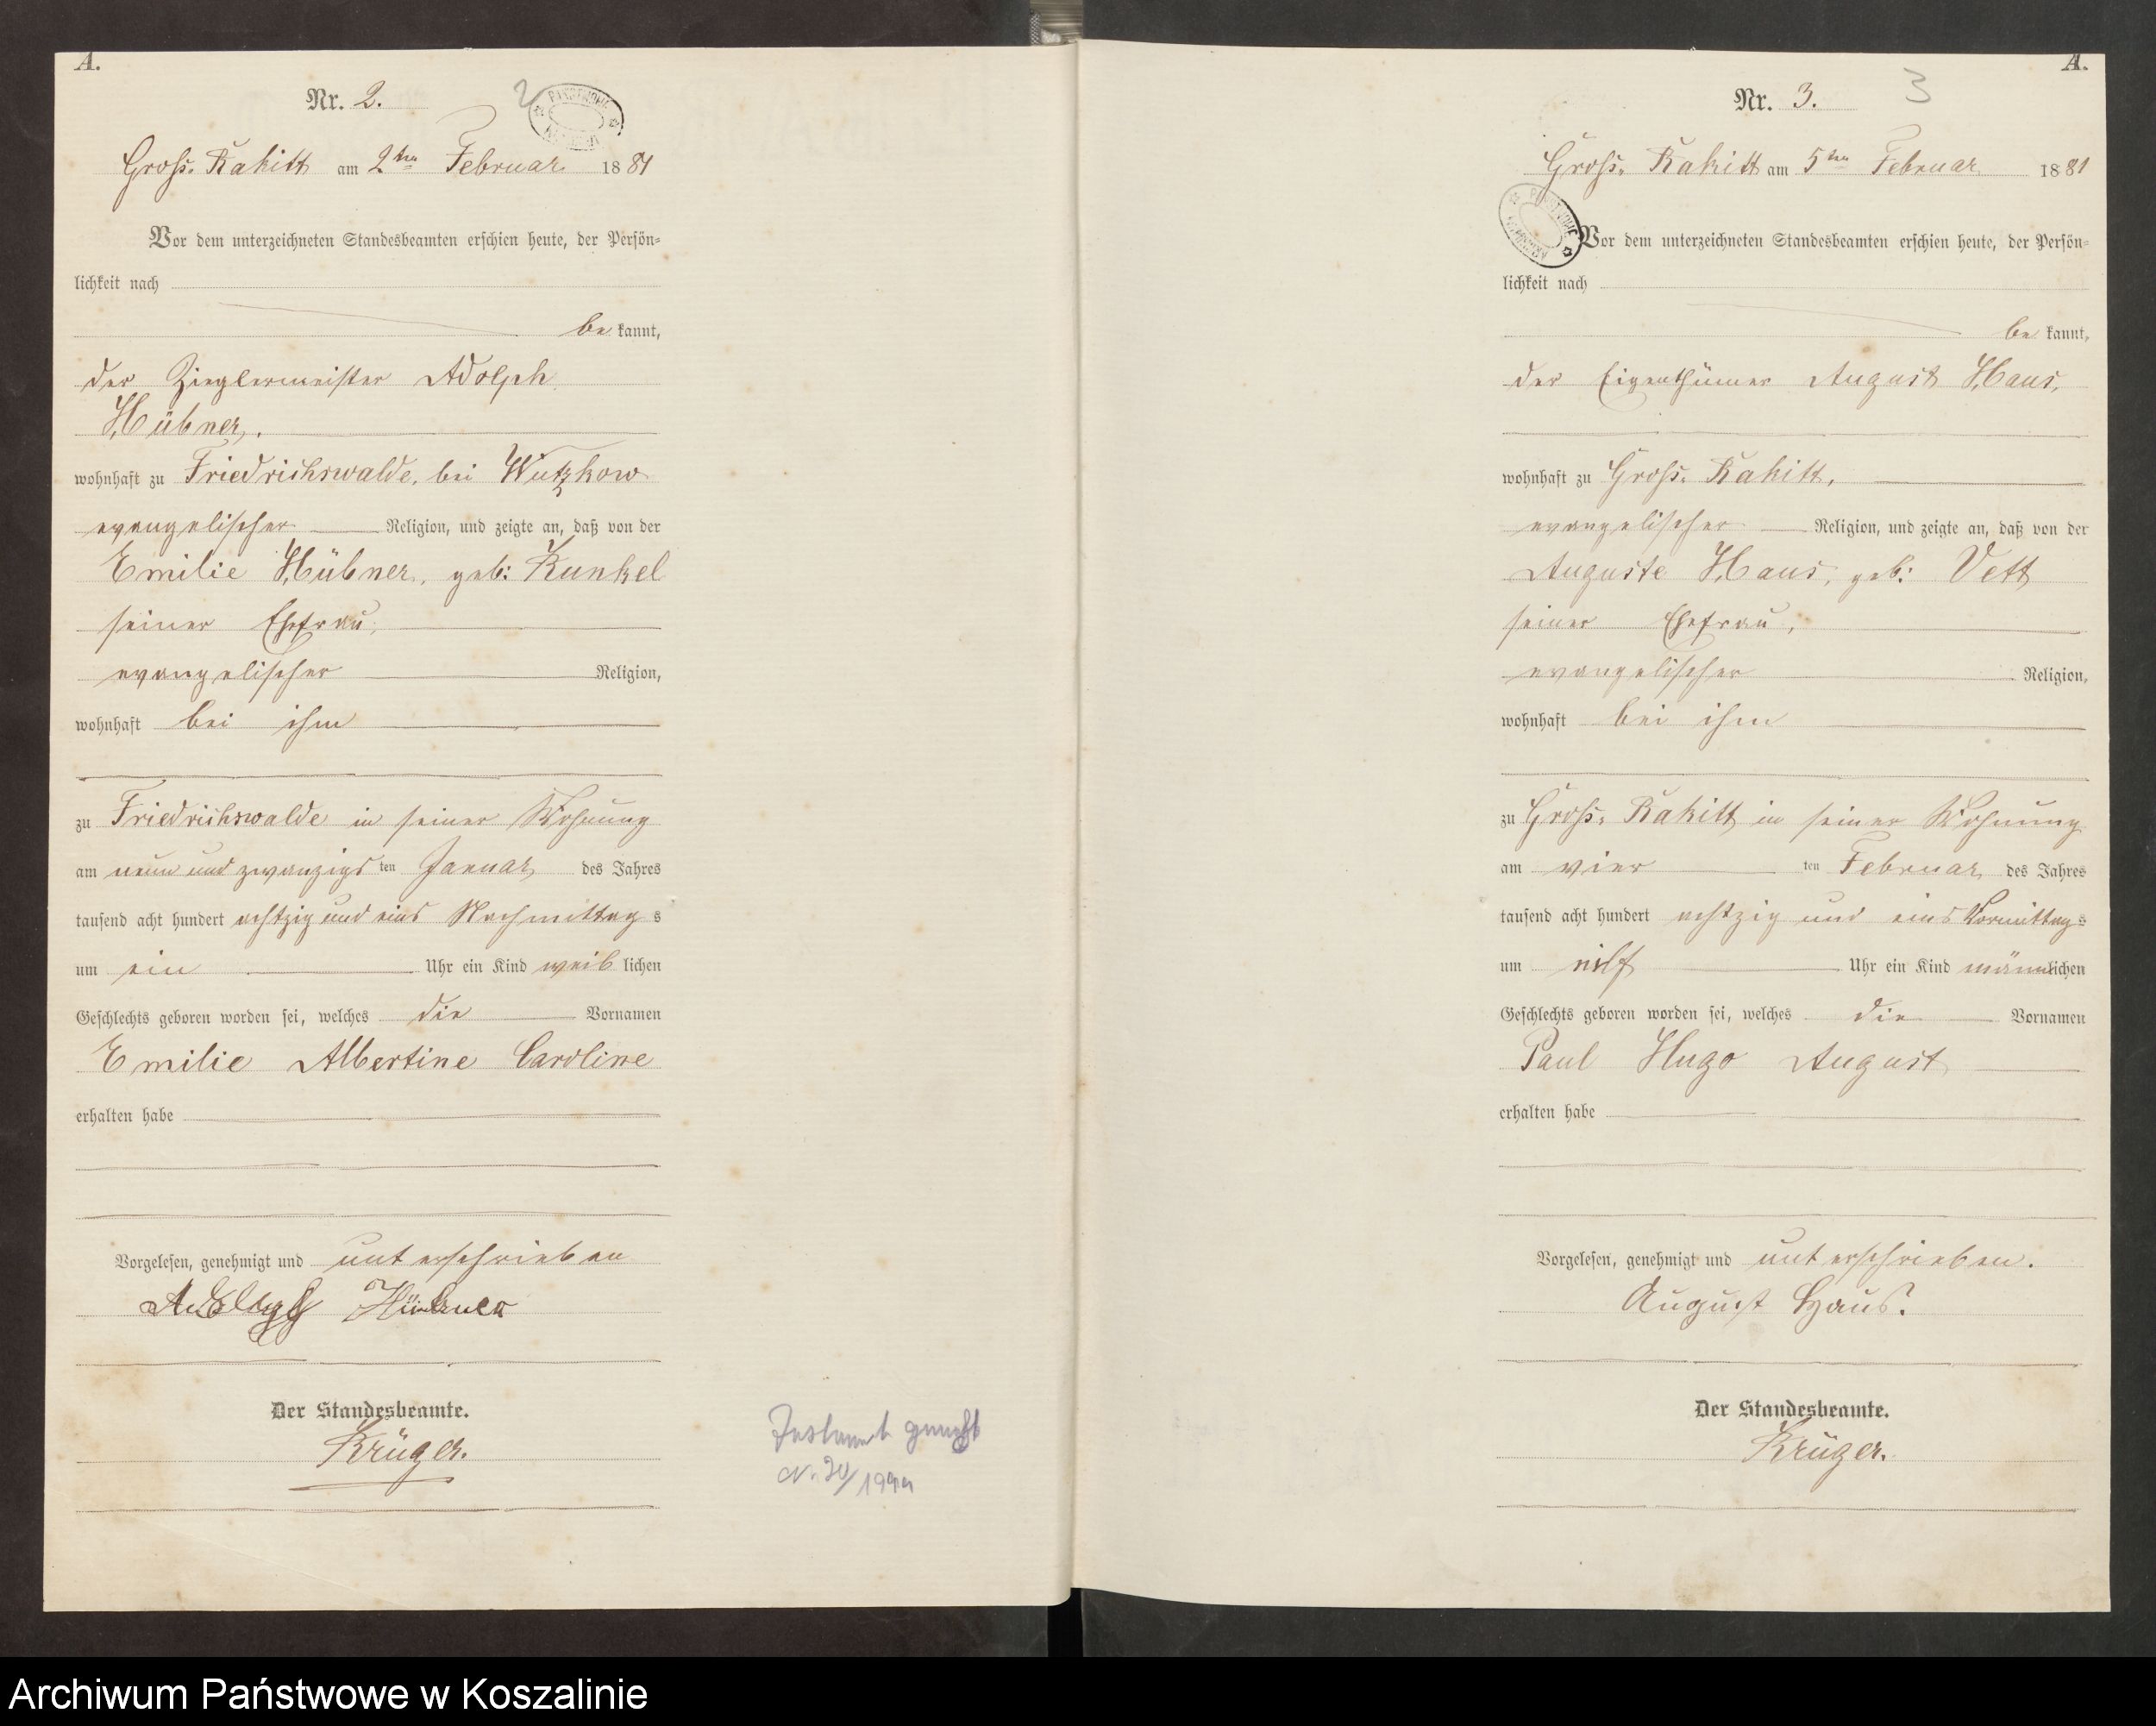 A.
Nr. 2.
2
Groß-Rakitt am 2ten Februar 1881
Vor dem unterzeichneten Standesbeamten erschien heute, der Persön-
lichkeit nach
be kannt,
der Zieglermeister Adolph
Hübner,
wohnhaft zu Friedrichswalde, bei Wutzkow
evangelischer Religion, und zeigte an, daß von der
Emilie Hübner, geb: Kunkel
seiner Ehefrau,
evangelischer Religion,
wohnhaft bei ihm
zu Friedrichswalde in seiner Wohnung
am neun und zwanzigs ten Januar des Jahres
tausend acht hundert achtzig und eins Nachmittag s
um ein Uhr ein Kind weib lichen
Geschlechts geboren worden sei, welches die Vornamen
Emilie Albertine Caroline
erhalten habe
Vorgelesen, genehmigt und unterschrieben
Adolph Hübner
Der Standesbeamte.
Krüger.
A.
Nr. 3.
3
Groß-Rakitt am 5ten Februar 1881
Vor dem unterzeichneten Standesbeamten erschien heute, der Persön-
lichkeit nach
be kannt,
der Eigenthümer August Haus,
wohnhaft zu Groß-Rakitt,
evangelischer Religion, und zeigte an, daß von der
Auguste Haus, geb: Vett
seiner Ehefrau,
evangelischer Religion,
wohnhaft bei ihm
zu Groß-Rakitt in seiner Wohnung
am vier ten Februar des Jahres
tausend acht hundert achtzig und eins Vormittag s
um eilf Uhr ein Kind männlichen
Geschlechts geboren worden sei, welches die Vornamen
Paul Hugo August
erhalten habe
Vorgelesen, genehmigt und unterschrieben.
August Haus.
Der Standesbeamte.
Krüger.
Archiwum Państwowe w Koszalinie